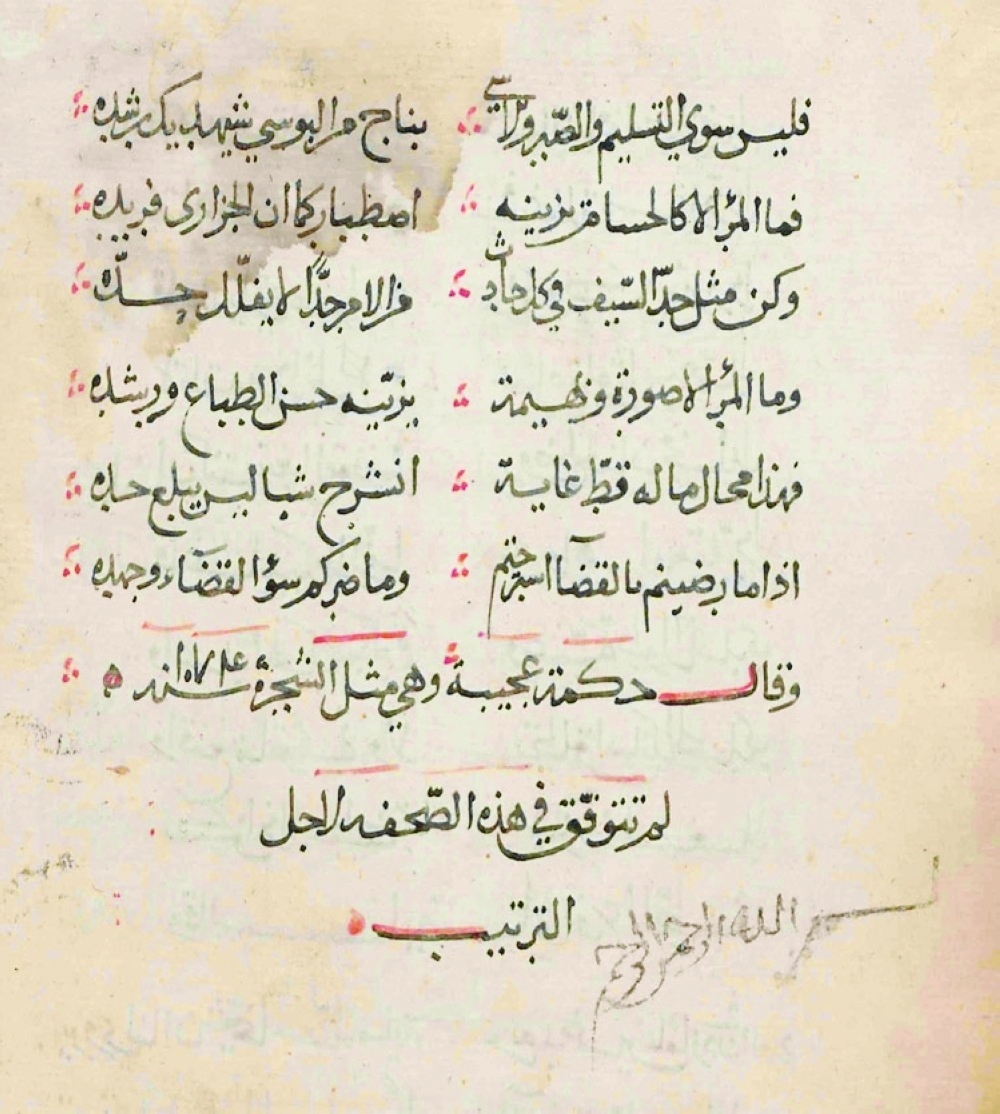 فليس سوي التسليم والصّبر والاسي بناج من البوسي شهيد يك رشده
فما المرؤ الا كالحسام يزينه اصطبار كما ان الجزاري فربده
وكن مثل حدّ السّيف في كل حادث من الامر جدًّا لا يفلّل حدّه
وما المرؤ الا صورة وبهيمة يزيّنه حسن الطباع ورشده
فهذا محال ماله قطّ غاية انشرح شيا ليس يبلغ حده
اذا ما رضيتم بالقضآ استرحتم وما ضركم سؤ القضآء وجهده
وقال حكمة عجيبة وهي مثل الشجرة على
لم تتوفّق في هذه الصّحفه لاجل
الترتيب
بسم الله الرحمن الرحيم